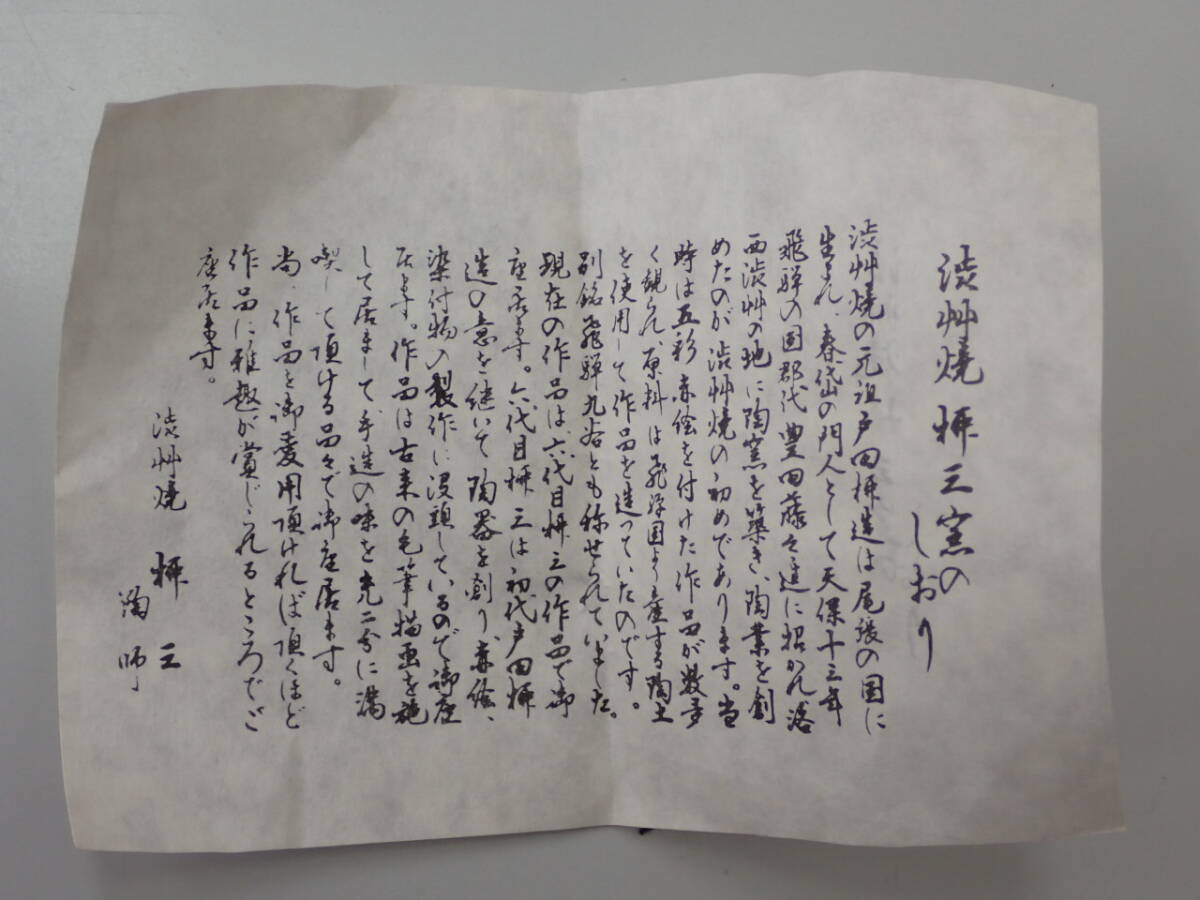 渋艸焼 柳三窯の
しおり
渋艸焼の元祖戸田柳造は尾張の国に
生まれ、春岱の門人として天保十三年
飛騨の国郡代豊田藤之進に招かれ落
西渋艸の地に陶窯を築き、陶業を創
めたのが渋艸焼の初めであります。当
時は五彩赤絵を付けた作品が数多
く観られ、原料は飛騨国より産する陶土
を使用して作品を造っていたのです。
別銘飛騨九谷とも称せられていました。
現在の作品は、六代目柳三の作品で御
座居ます。六代目柳三は初代戸田柳
造の意を継いで陶器を創り、赤絵、
染付物の製作に没頭しているので御座
居ます。作品は古来の毛筆描画を施
して居まして、手造の味を充二分に満
喫して頂ける品々で御座居ます。
尚、作品を御愛用頂ければ頂くほど
作品に雅趣が賞じられるところでご
座居ます。
渋艸焼 柳三
陶師